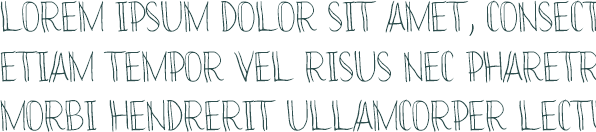 LOREM IPSUM DOLOR SIT AMET, CONSECT
ETIAM TEMPOR VEL RISUS NEC PHARETR
MORBI HENDRERIT ULLAMCORPER LECTU